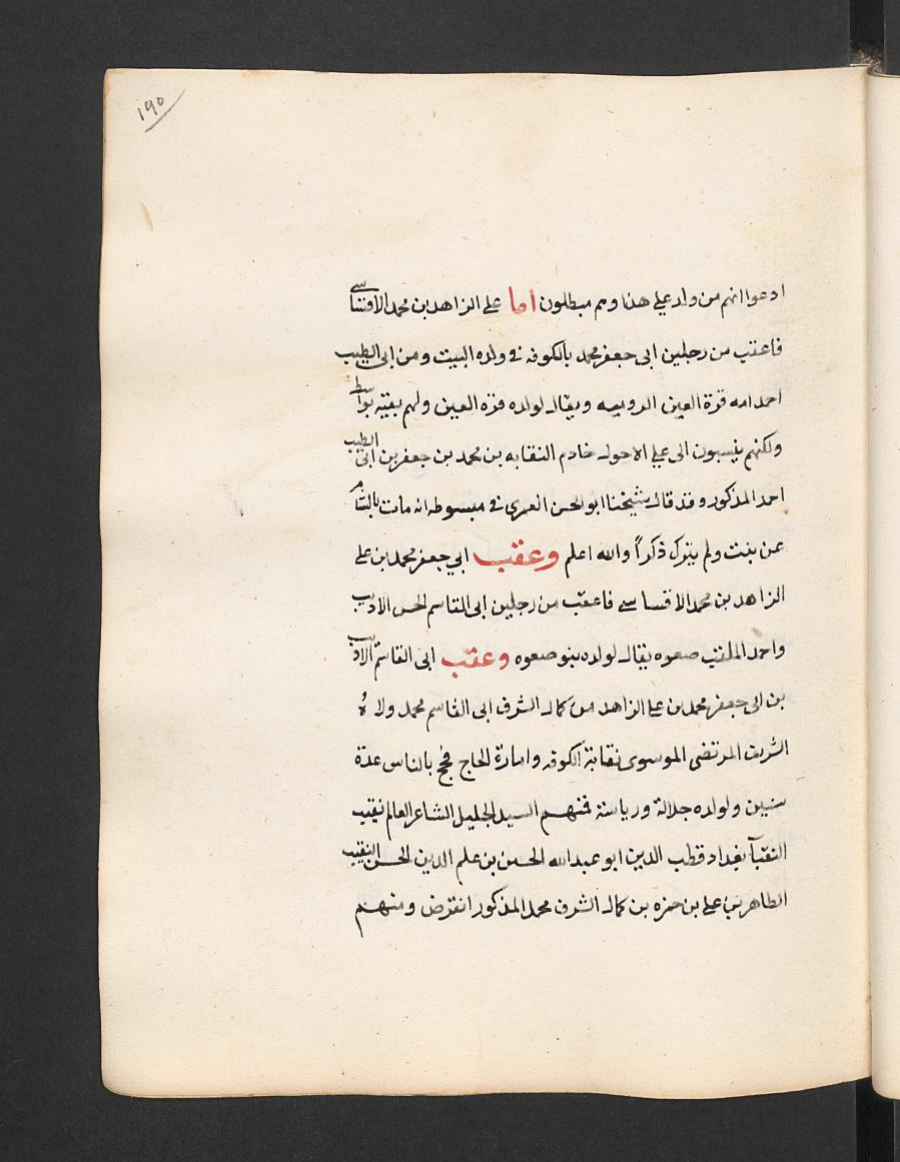 ١٩٥
ادعوا انهم من ولد علي هذا وهم مبطلون اما علي الزاهد بن محمد الاقساسي
فاعقب من رجلين ابي جعفر محمد بالكوفه في ولده البيت ومن ابي الطيب
احمد امه قرة العين الروميه ويقال لولده قره العين ولهم بقيه بواسط
ولكنهم ينسبون الى علي الاحول خادم النقابه بن محمد بن جعفر بن ابي الطيب
احمد المذكور وقد قال شيخنا ابو الحسن العمري في مبسوطه انه مات بالشام
عن بنت ولم يترك ذكراً والله اعلم وعقب ابي جعفر محمد بن علي
الزاهد بن محمد الاقساسي فاعقب من رجلين ابي القاسم الحسن الاديب
واحمد الملقب صعوه يقال لولده بنو صعوه وعقب ابي القاسم الاديب
بن ابي جعفر محمد بن علي الزاهد من كمال الشرف ابي القاسم محمد ولاه
الشريف المرتضى الموسوي نقابة الكوفه وامارة الحاج فحج بالناس عدة
سنين ولولده جلالة ورياسة فمنهم السيد الجليل الشاعر العالم نقيب
النقبآ بغداد قطب الدين ابو عبد الله الحسين بن علم الدين الحسن النقيب
الطاهر بن علي بن حمزه بن كمال الشرف محمد المذكور انقرض ومنهم